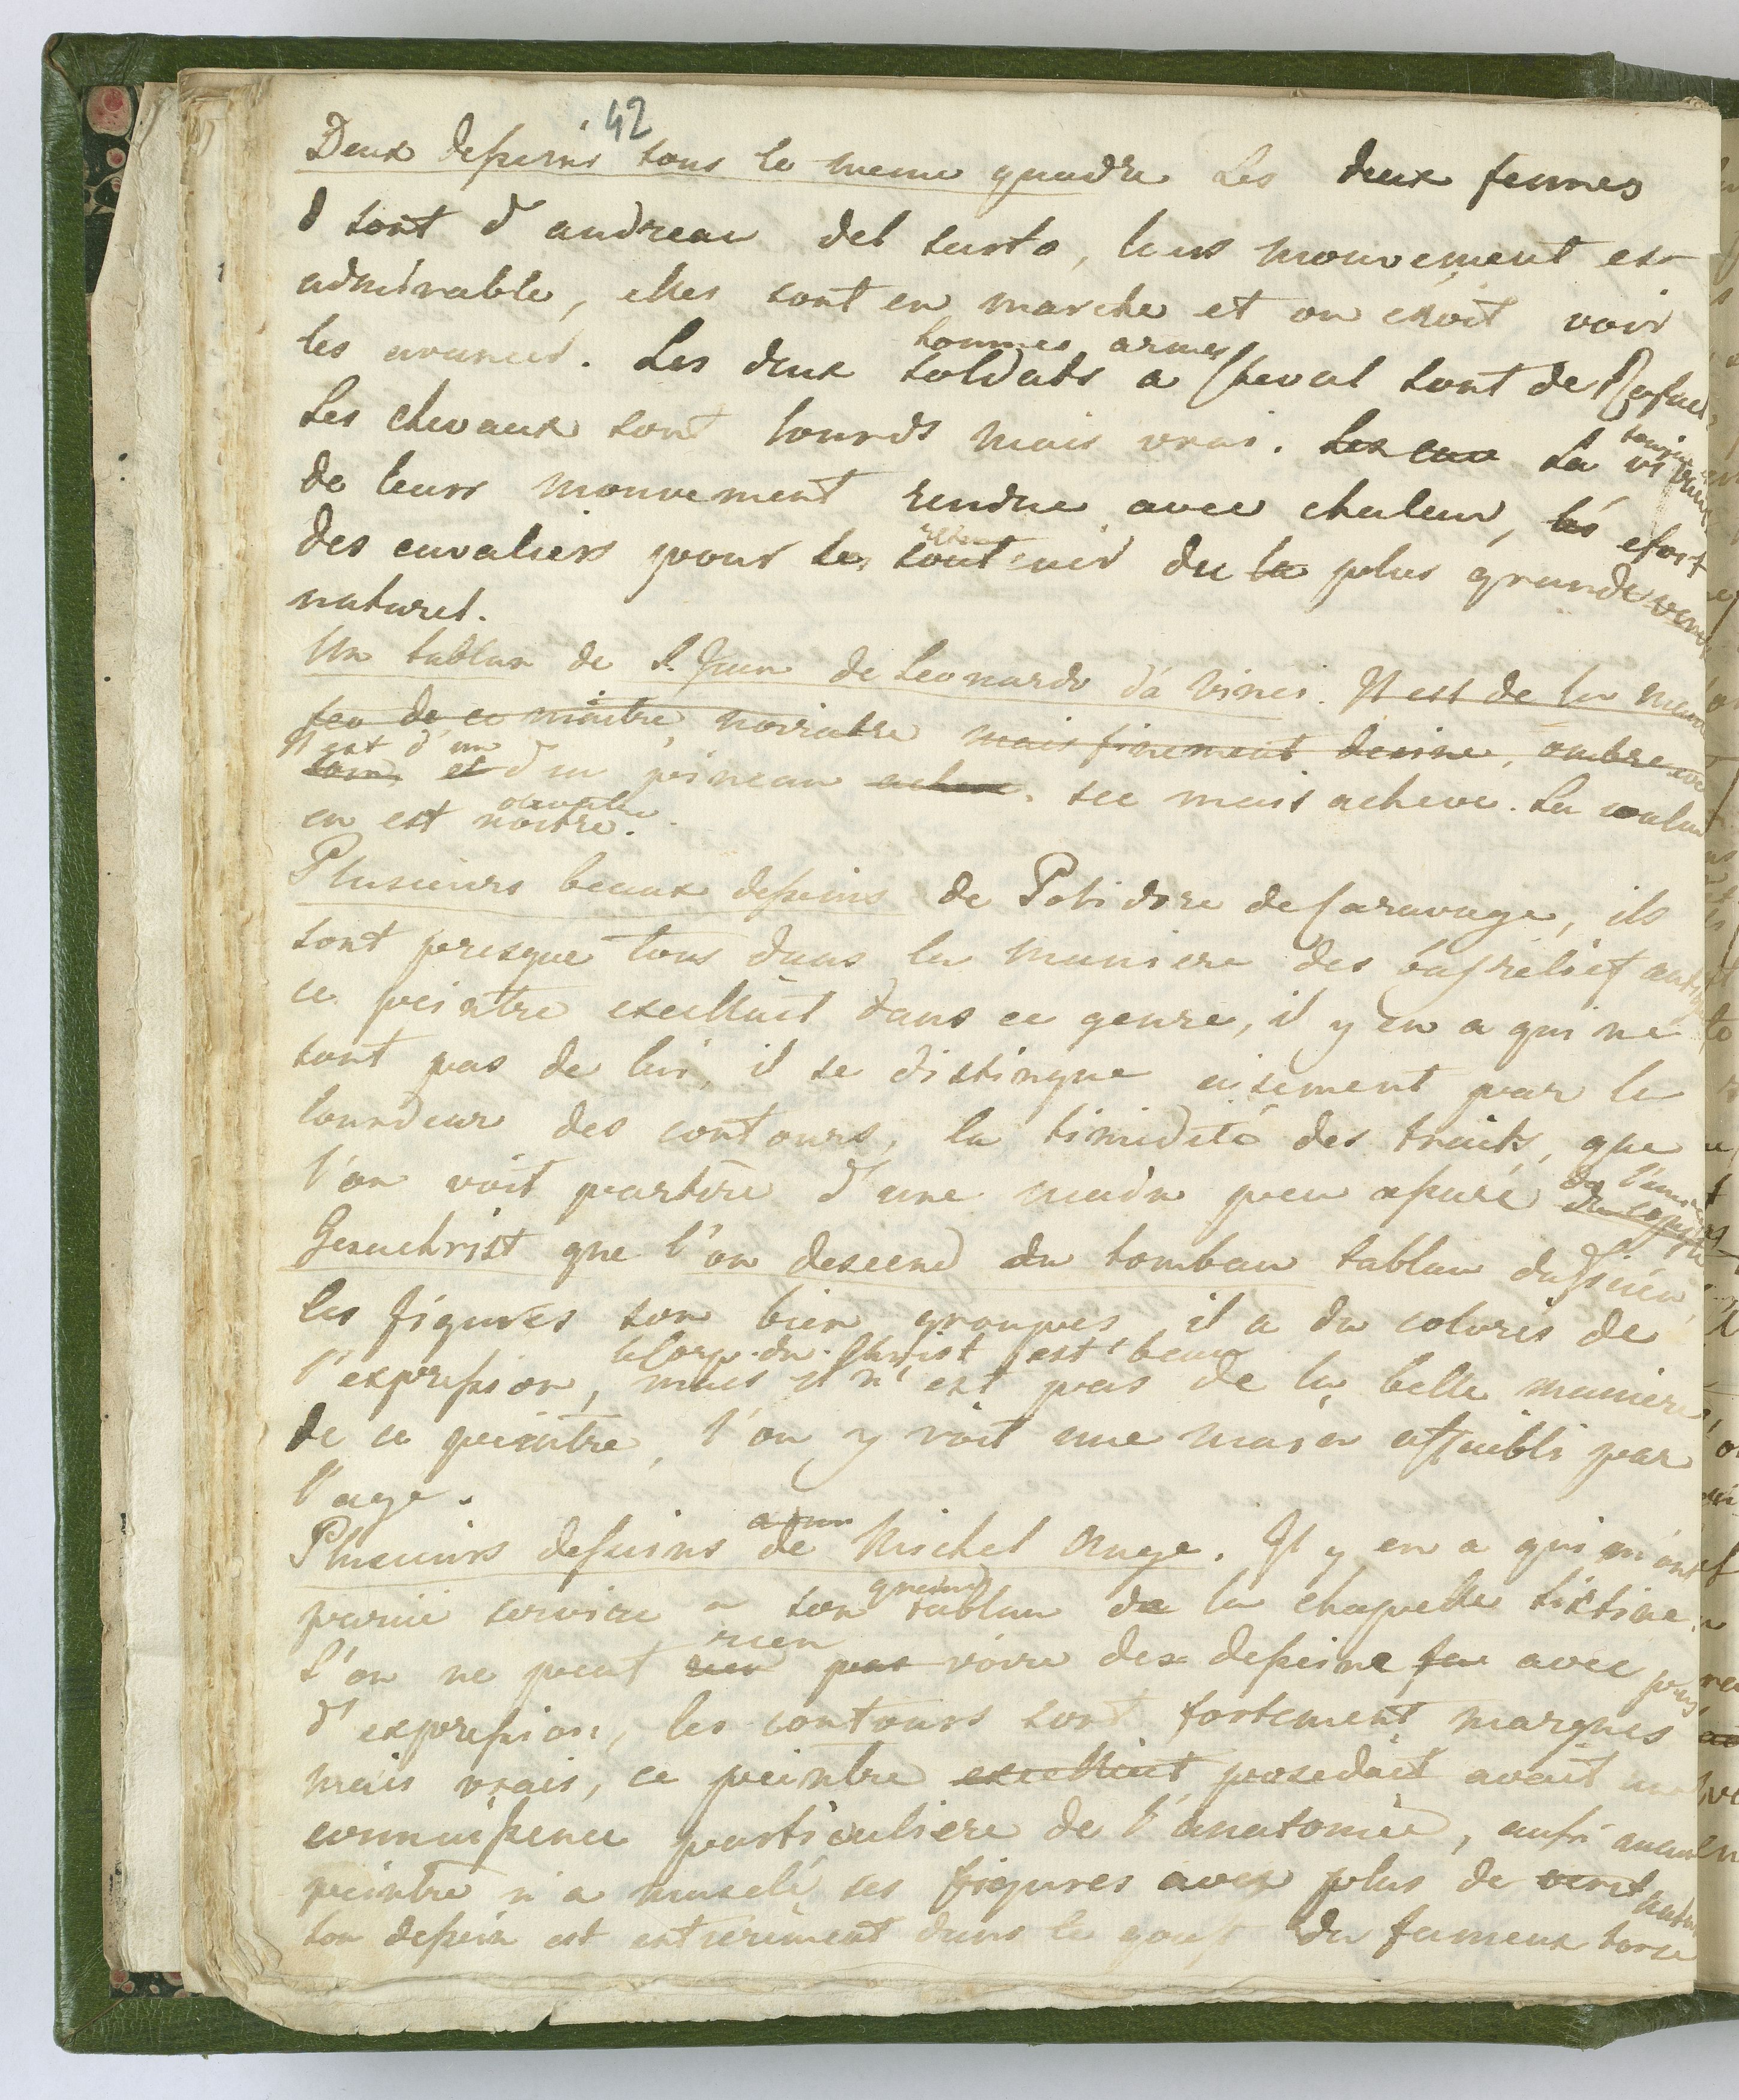 42
Deux dessins sous le meme quadre Les deux femmes
sont d'andreau del sarto, leurs mouvement est
admirable, elles sont en marche et on croit voir
hommes armes
les avancer. Les deux soldats a Cheval sont de Rafael,
Les chevaux sont lourds mais vrai. La
de leurs mouvement rendue avec chaleur, les efort
des cavaliers pour se soutenir du la plus grande
naturel.
Un tablau de S. Jean de Leonardo da Vinci. Il est de la
feu de ce maitre, noiratre mais finement desine, ombre
Il est d'un
et d'un pinceau acheve, sec mais acheve. La couleur
olivatre
en est noitre.
Plusieurs beaux dessins de Polidore de Caravage, ils
sont presque tous dans la maniere des bas relief
ce peintre excellait dans ce genre, il y en a qui ne
sont pas de lui, il se distingue aisement par la
lourdeur des contours, la timidité des traits, que
l'on voit partire d'une main peu assuré
Gesuchrist que l'on descend du tombau tablau du Titien
les figures son bien groupes, il a du coloris de
le Corp du Christ est beau
l'expression, mais il n'est pas de la belle maniere
de ce peintre, l'on y voit une main affaibli par
l'age.
Plusieurs dessins de Michel Ange. Il y en a qui m'ont
grand
parue servire a son tablau de la chapelle sixtine.
rien
L'on ne peut rien pas voire des dessins fai avec plus
d'expression, les contours sont fortement marques
mais vrais, ce peintre excellait posedait avait une
connaissence particuliere de l'anatomie, aussi aucun
peintre n'a musclé ses figures avec plus de verité
Son dessein est entierement dans le gout du fameux torse